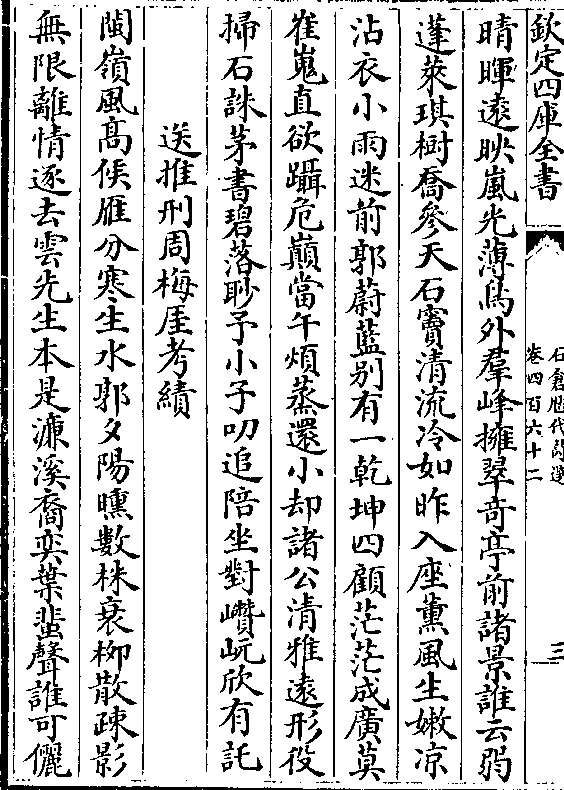 欽定四庫全書
石倉歷代詩選
卷四百六十二
三
晴暉遠映嵐光薄鳥外羣峰擁翠奇亭前諸景誰云弱
蓬萊琪樹喬參天石竇清流冷如昨入座薰風生嫩凉
沾衣小雨迷前郭蔚藍别有一乾坤四顧茫茫成廣莫
崔嵬直欲躡危巔當午煩蒸還小却諸公清雅遠形役
掃石誅茅書碧落眇予小子叨追陪坐對巑岏欣有託
送推刑周梅厓考績
閩嶺風髙候雁分寒生水郭夕陽曛數株衰栁散疎影
無限離情逐去雲先生本是濂溪裔奕葉蜚聲誰可儷